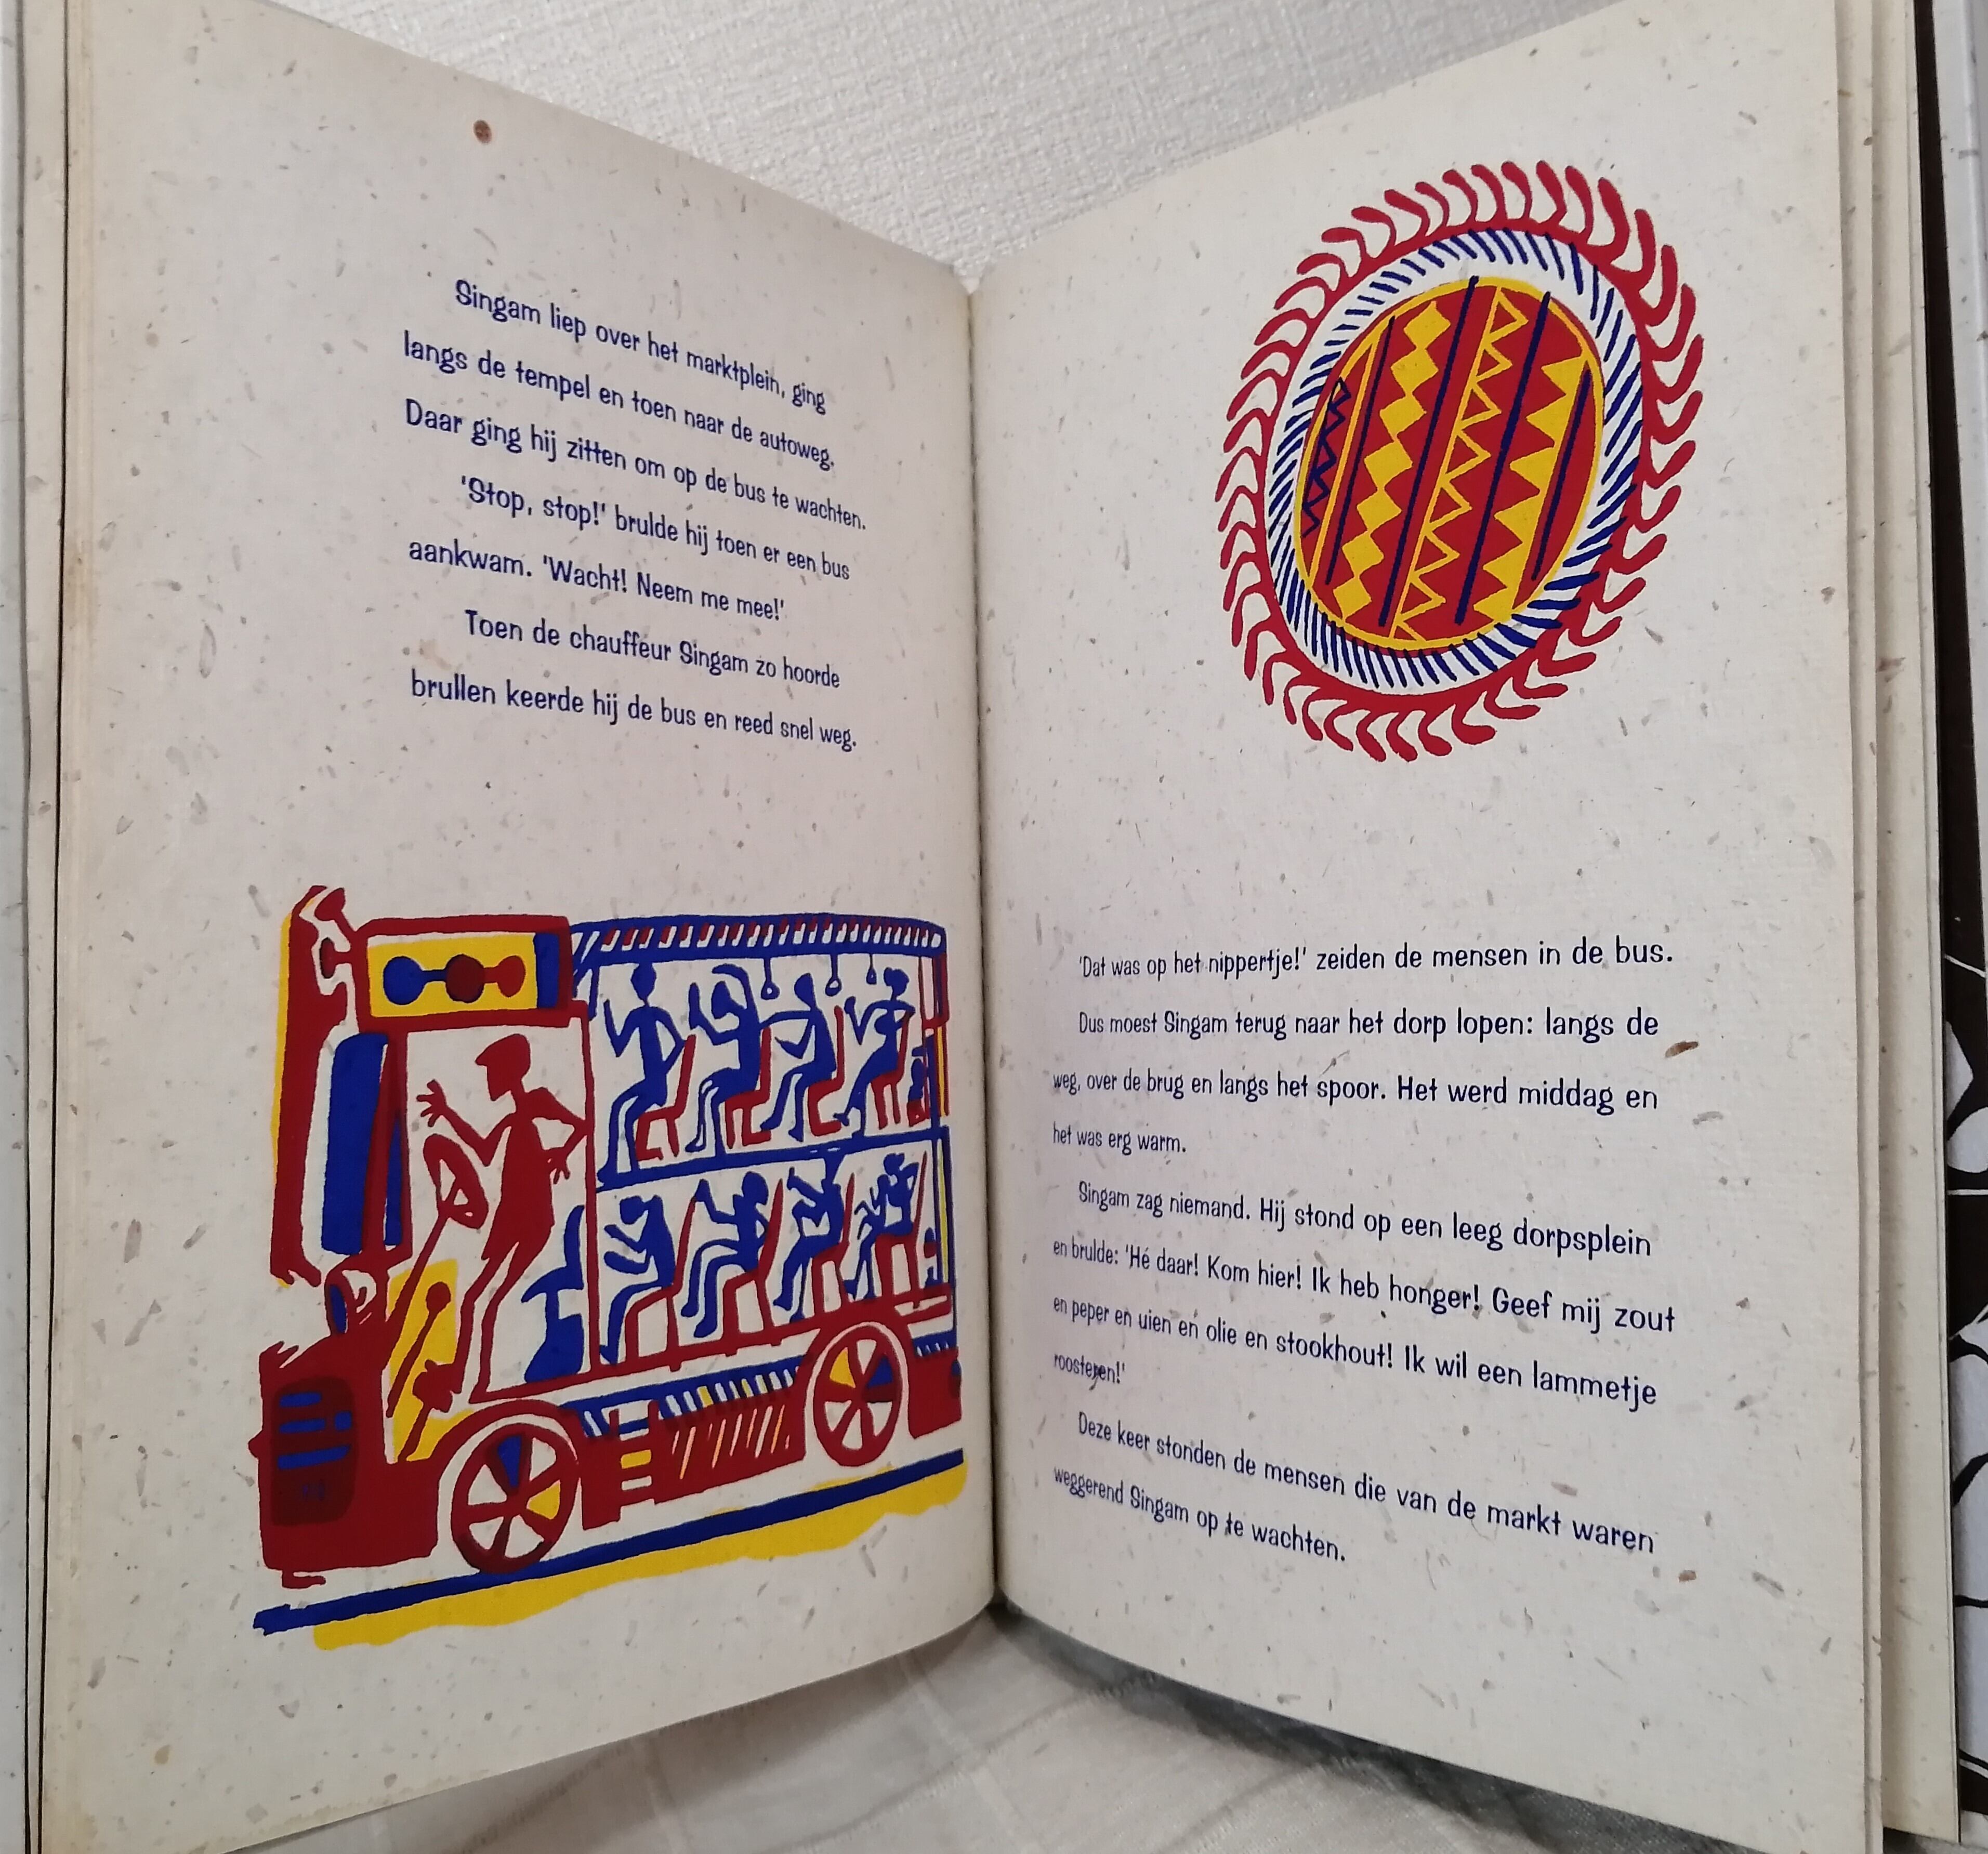 Singam liep over het marktplein, ging
langs de tempel en toen naar de autoweg.
Daar ging hij zitten om op de bus te wachten.
'Stop, stop!' brulde hij toen er een bus
aankwam. 'Wacht! Neem me mee!'
Toen de chauffeur Singam zo hoorde
brullen keerde hij de bus en reed snel weg.
'Dat was op het nippertje!' zeiden de mensen in de bus.
Dus moest Singam terug naar het dorp lopen: langs de
weg, over de brug en langs het spoor. Het werd middag en
het was erg warm.
Singam zag niemand. Hij stond op een leeg dorpsplein
en brulde: 'Hé daar! Kom hier! Ik heb honger! Geef mij zout
en peper en uien en olie en stookhout! Ik wil een lammetje
roosteren!'
Deze keer stonden de mensen die van de markt waren
weggerend Singam op te wachten.